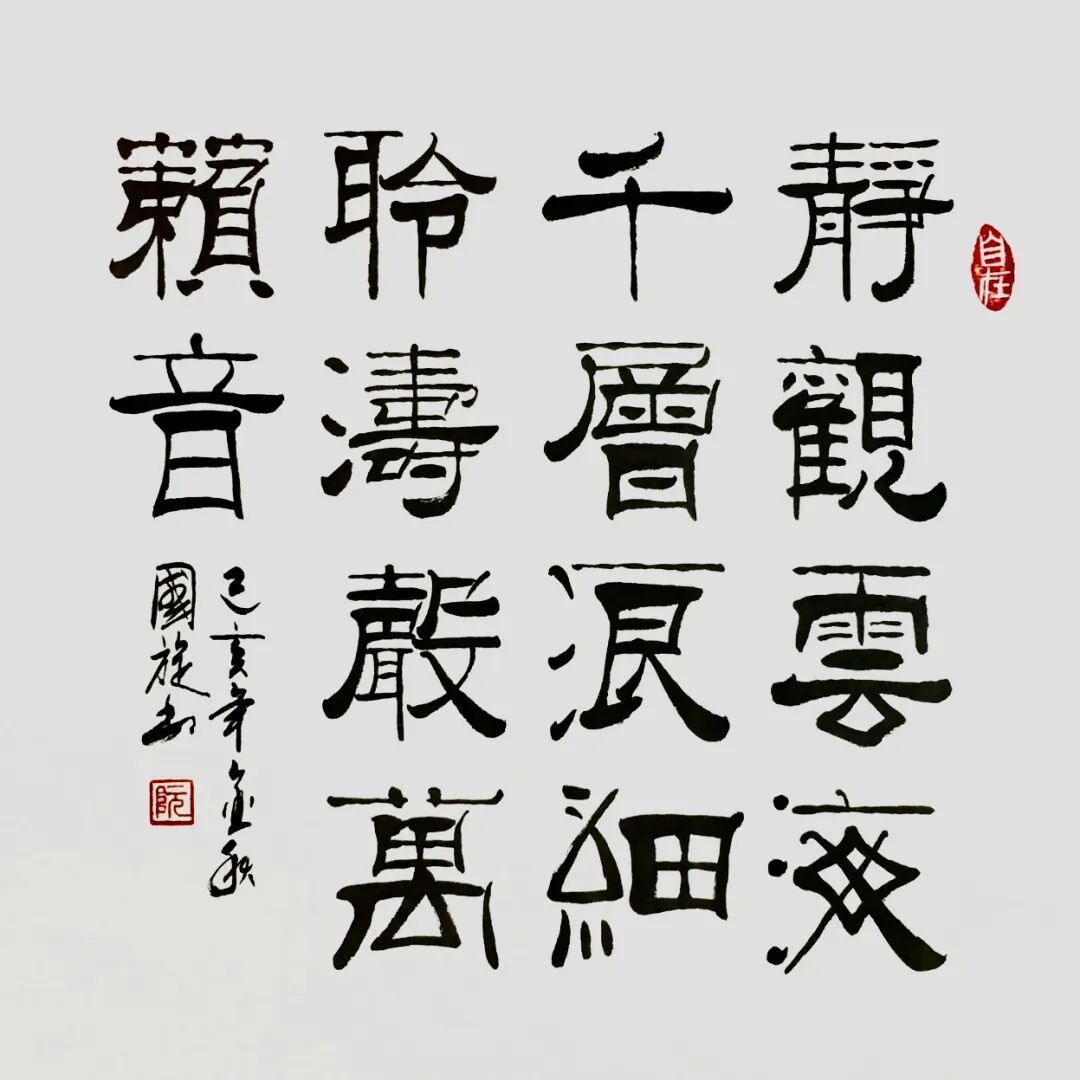 自在
靜觀雲海
千層浪細
聆濤聲萬
籟音
己亥年金秋
國旋书
阮